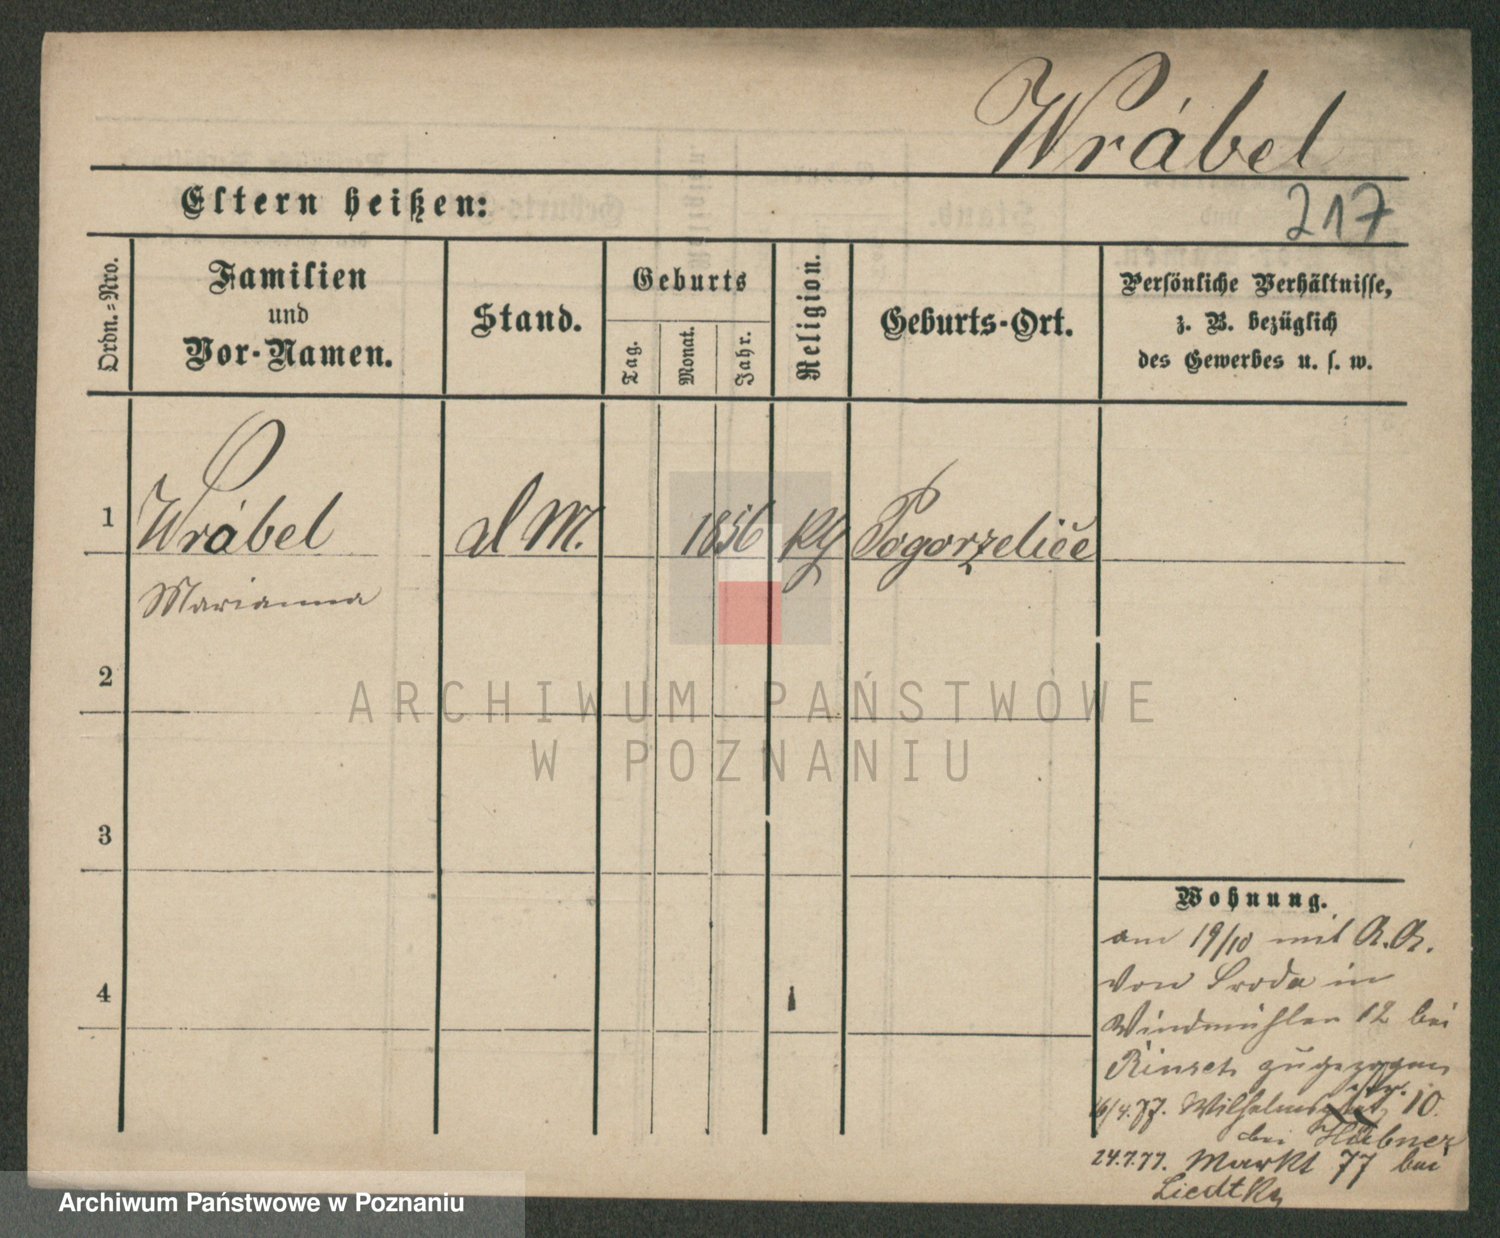 Wrábel
217
Eltern heißen:
Ordn.-Nro.
Familien
und
Vor-Namen.
Stand.
Geburts
Tag.
Monat.
Jahr.
Religion.
Geburts-Ort.
Persönliche Verhältnisse,
z. B. bezüglich
des Gewerbes u. s. w.
1
Wrábel
d M.
1856
Pogorzelice
Marianna
2
ARCHIWUM PAŃSTWOWE
W POZNANIU
3
Wohnung.
am 19/10 mit A. A.
von Sroda in
4
Windmühlen 12 bei
Rinsch zugezogen
str.
16/4.77. Wilhelmsplatz 10.
bei Hübner
24.7.77. Markt 77 bei
Liedtke
Archiwum Państwowe w Poznaniu